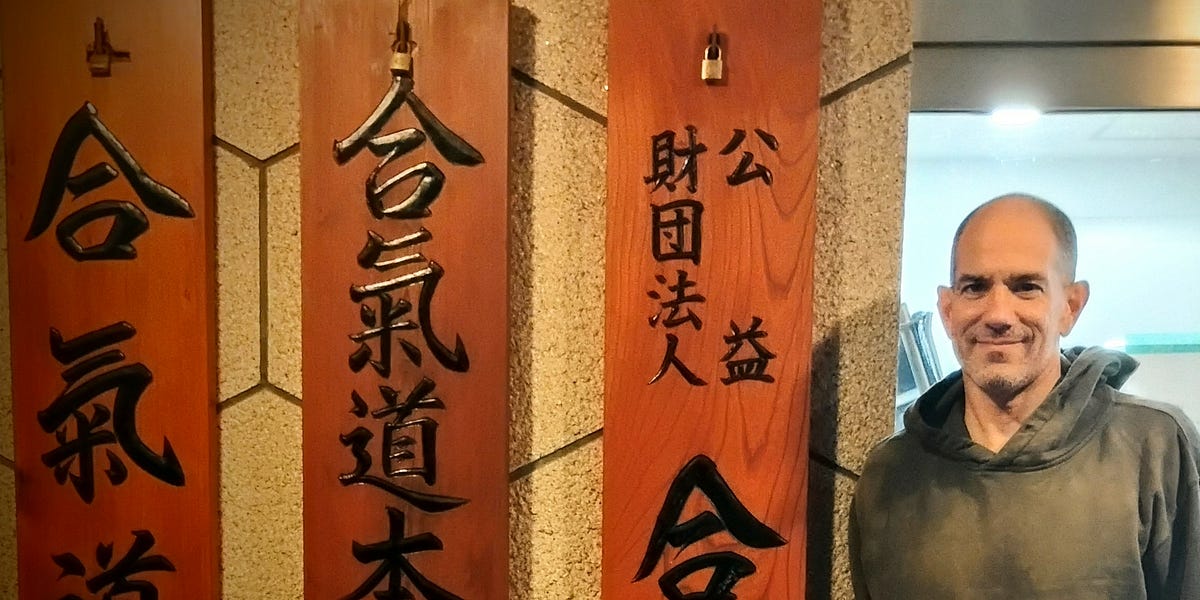 公益
財団法人
合
合氣道本
合氣道